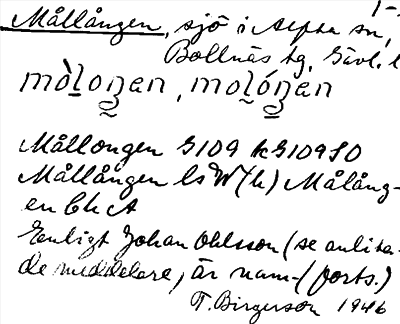 Mållången, sjö i Alfta sn,
Bollnäs tg, Gävl. l
mòloŋen, molóŋen
Mållongen G109 kG109SO
Mållången ls W(h) Målång-
en Ch A
Enligt Johan Ohlsson (se anlita-
de meddelare) är nam- (forts.)
T. Birgerson 1946